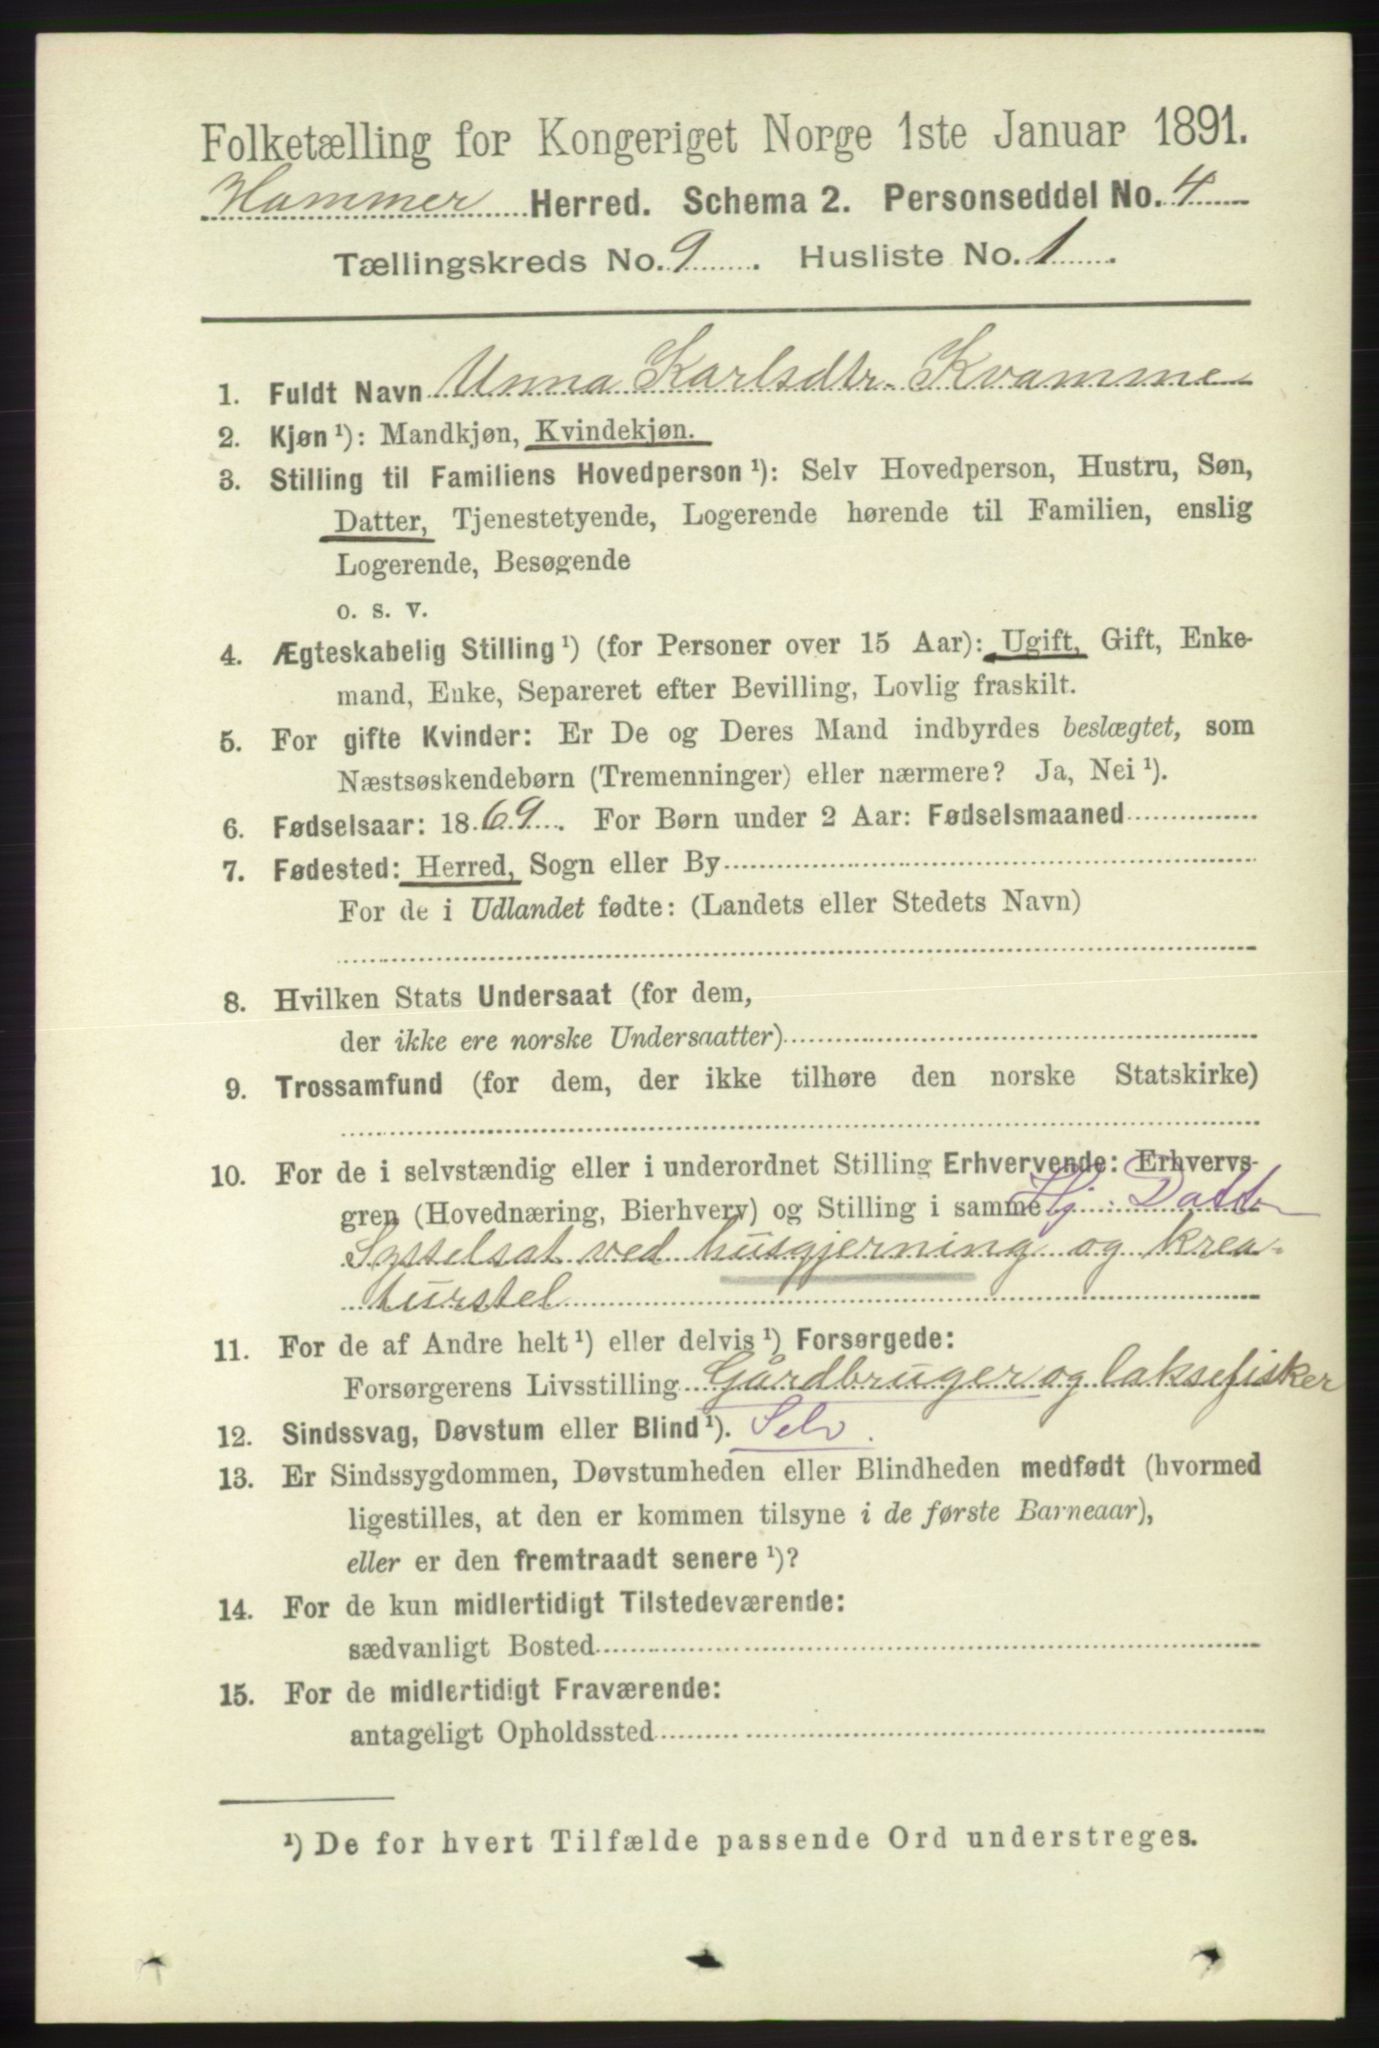 Folketælling for Kongeriget Norge 1ste Januar 1891.
Hammer Herred. Schema 2. Personseddel No. 4
Tællingskreds No. 9. Husliste No. 1
1. Fuldt Navn Unna Karlsdtr. Kvamme
2. Kjøn¹): Mandkjøn, Kvindekjøn.
3. Stilling til Familiens Hovedperson¹): Selv Hovedperson, Hustru, Søn,
Datter, Tjenestetyende, Logerende hørende til Familien, enslig
Logerende, Besøgende
o. s. v.
4. Ægteskabelig Stilling¹) (for Personer over 15 Aar): Ugift, Gift, Enke-
mand, Enke, Separeret efter Bevilling, Lovlig fraskilt.
5. For gifte Kvinder: Er De og Deres Mand indbyrdes beslægtet, som
Næstsøskendebørn (Tremenninger) eller nærmere? Ja, Nei¹).
6. Fødselsaar: 1869. For Børn under 2 Aar: Fødselsmaaned
7. Fødested: Herred, Sogn eller By
For de i Udlandet fødte: (Landets eller Stedets Navn)
8. Hvilken Stats Undersaat (for dem,
der ikke ere norske Undersaatter)
9. Trossamfund (for dem, der ikke tilhøre den norske Statskirke)
10. For de i selvstændig eller i underordnet Stilling Erhvervende: Erhvervs-
gren (Hovednæring, Bierhverv) og Stilling i samme Hj. Datter
Sysselsat ved husgjerning og krea-
turstel
11. For de af Andre helt¹) eller delvis¹) Forsørgede:
Forsørgerens Livsstilling Gårdbruger og laksefisker
12. Sindssvag, Døvstum eller Blind¹). Selv.
13. Er Sindssygdommen, Døvstumheden eller Blindheden medfødt (hvormed
ligestilles, at den er kommen tilsyne i de første Barneaar),
eller er den fremtraadt senere¹)?
14. For de kun midlertidigt Tilstedeværende:
sædvanligt Bosted
15. For de midlertidigt Fraværende:
antageligt Opholdssted
¹) De for hvert Tilfælde passende Ord understreges.